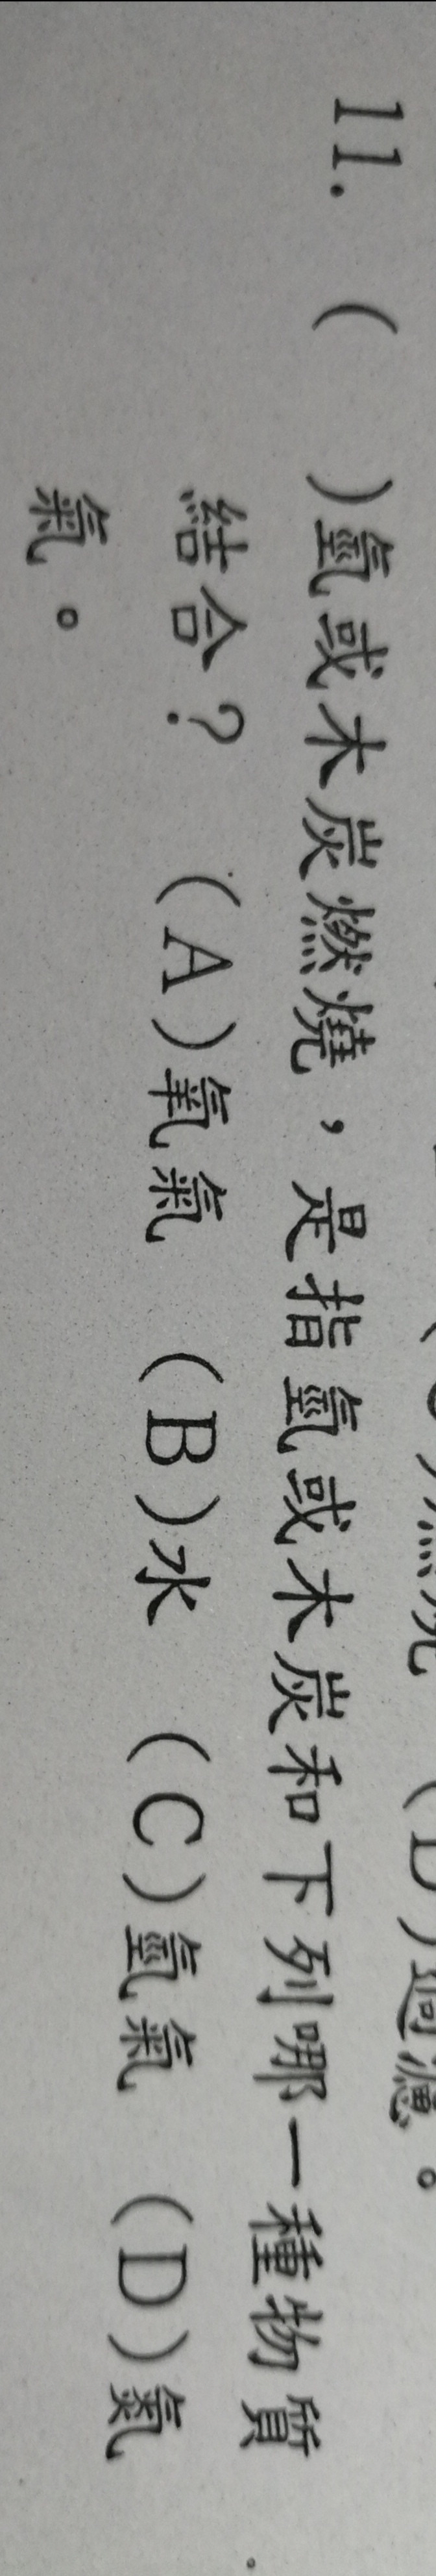 (C)燃燒 (D)過濾。
11. ( )氫或木炭燃燒，是指氫或木炭和下列哪一種物質
結合？ (A)氧氣 (B)水 (C)氫氣 (D)氮
氣。